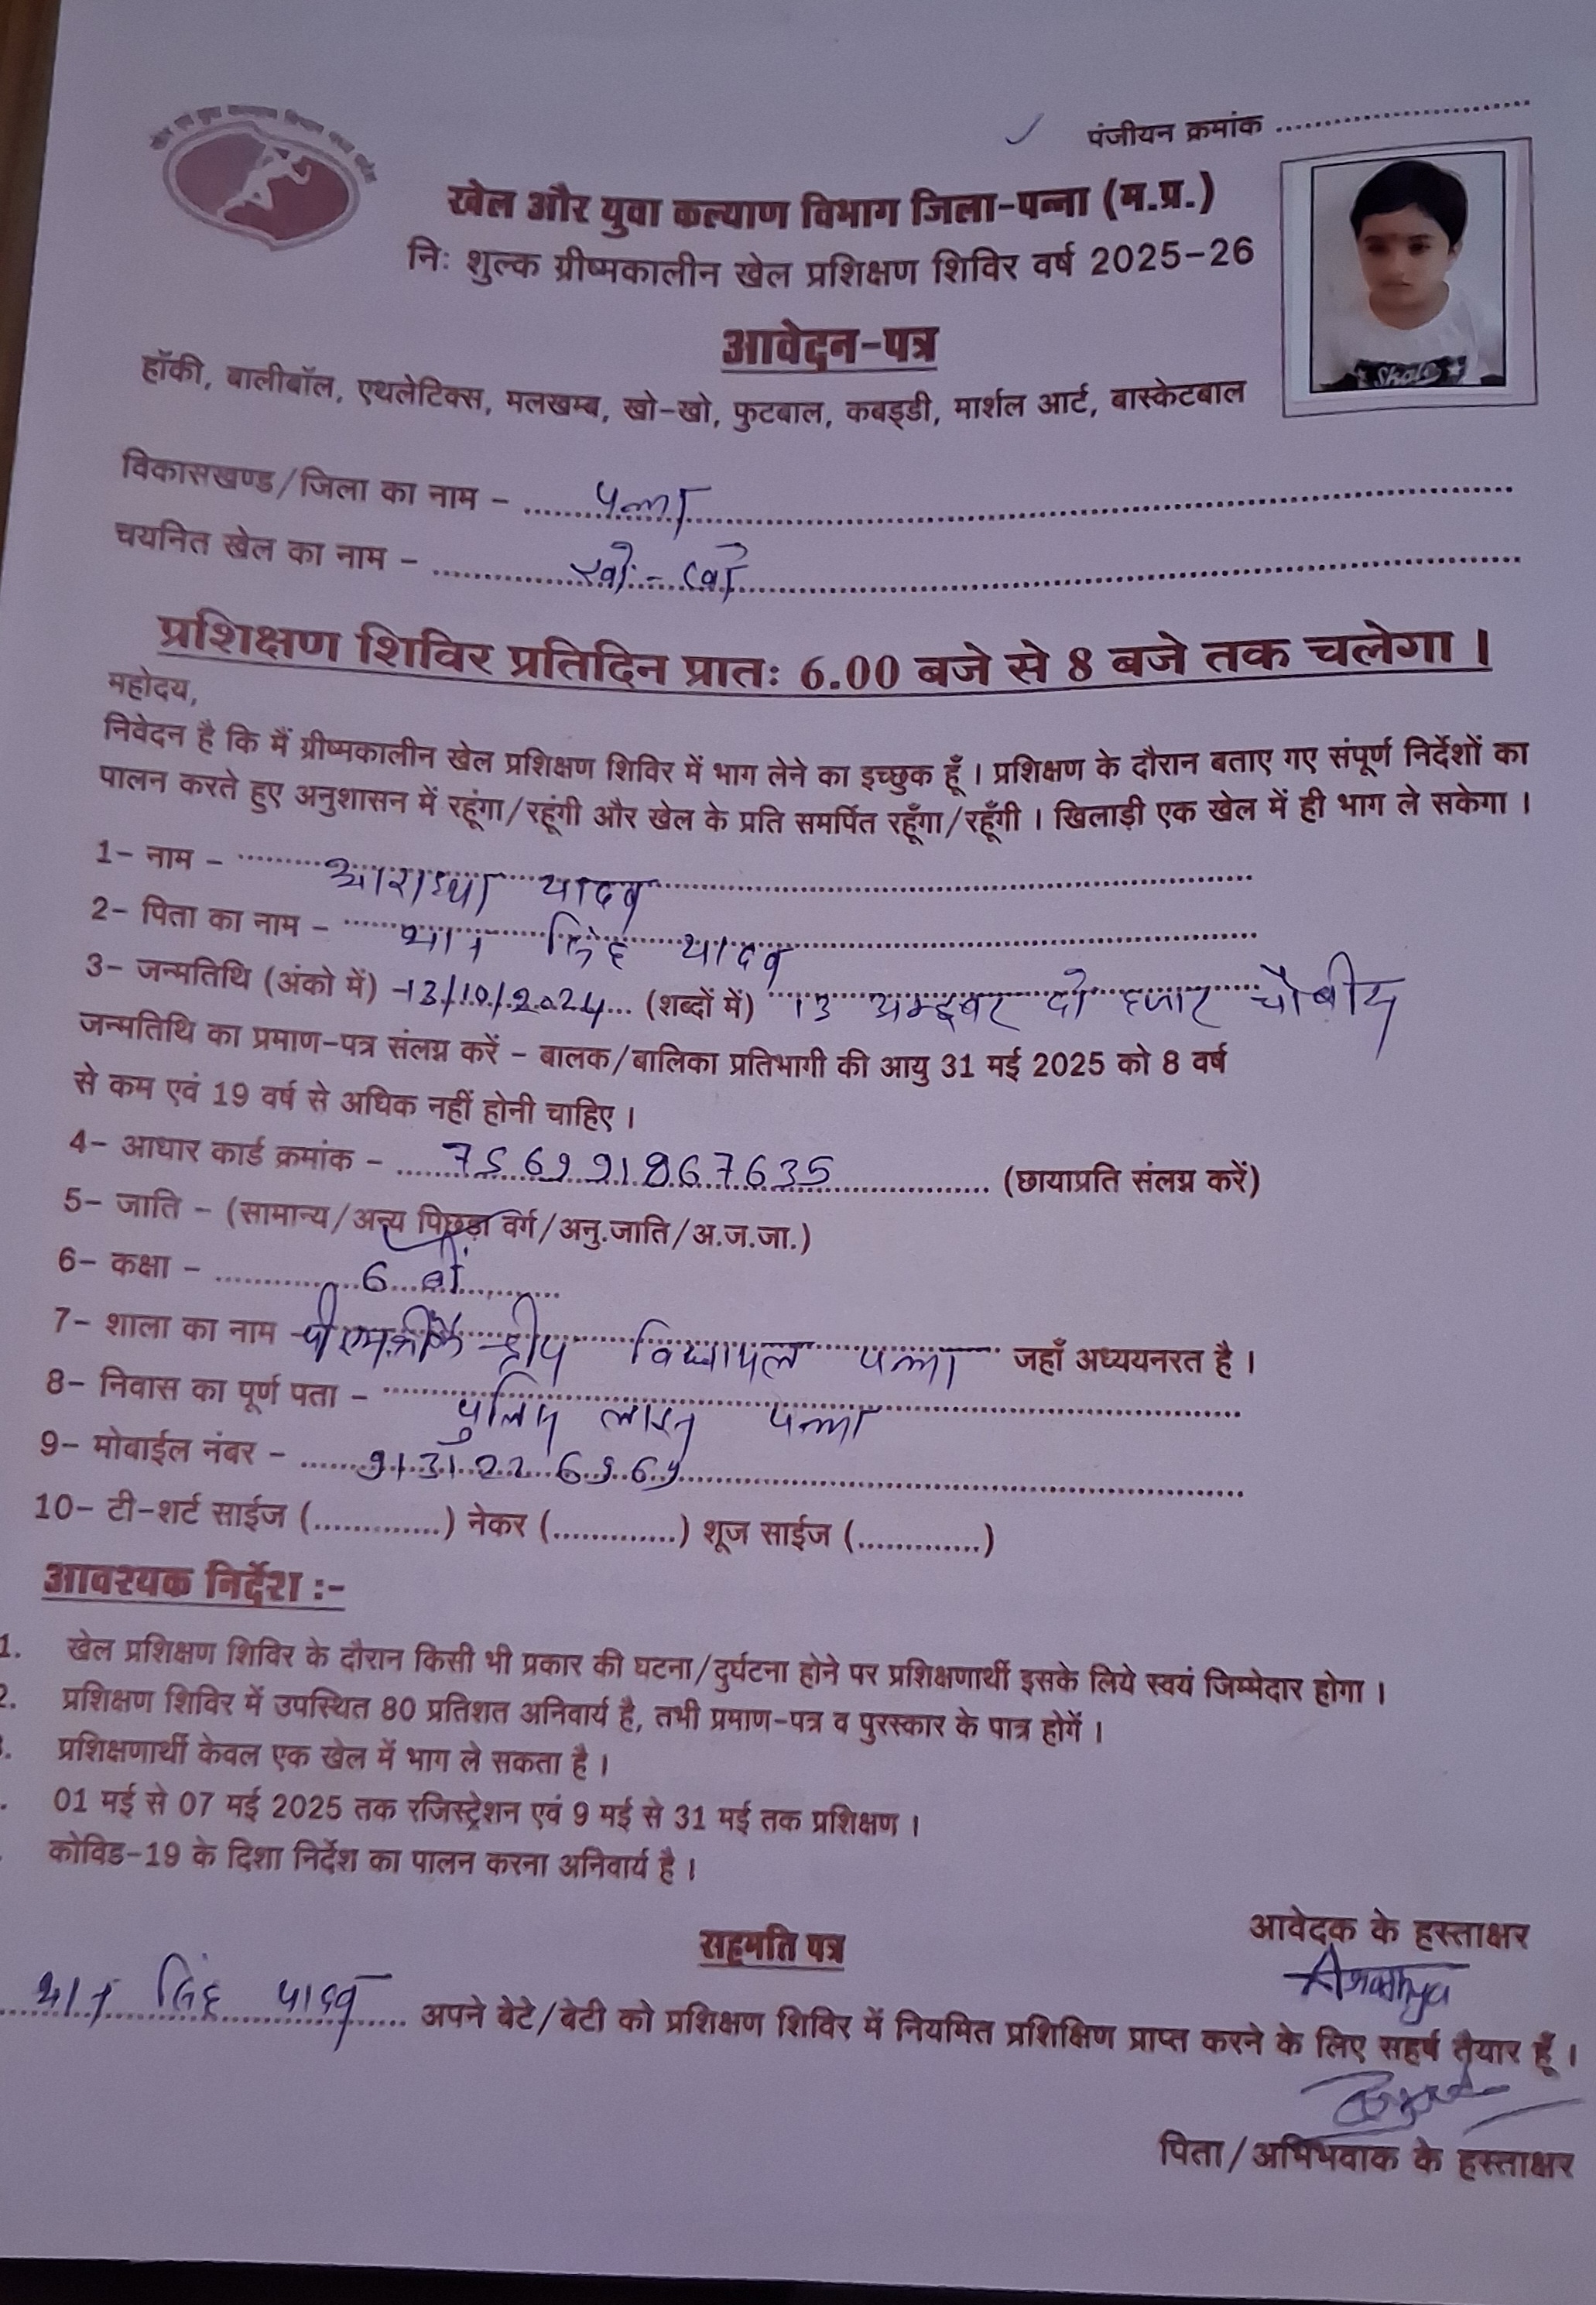 पंजीयन क्रमांक ........................
खेल और युवा कल्याण विभाग जिला-पन्ना (म.प्र.)
निः शुल्क ग्रीष्मकालीन खेल प्रशिक्षण शिविर वर्ष 2025-26
आवेदन-पत्र
Skate
हॉकी, बालीबॉल, एथलेटिक्स, मलखम्ब, खो-खो, फुटबाल, कबड्डी, मार्शल आर्ट, बास्केटबाल
विकासखण्ड/जिला का नाम - पन्ना
चयनित खेल का नाम - खो-खो
प्रशिक्षण शिविर प्रतिदिन प्रातः 6.00 बजे से 8 बजे तक चलेगा ।
महोदय,
निवेदन है कि मैं ग्रीष्मकालीन खेल प्रशिक्षण शिविर में भाग लेने का इच्छुक हूँ । प्रशिक्षण के दौरान बताए गए संपूर्ण निर्देशों का
पालन करते हुए अनुशासन में रहूंगा/रहूंगी और खेल के प्रति समर्पित रहूँगा/रहूँगी । खिलाड़ी एक खेल में ही भाग ले सकेगा ।
1- नाम - आराध्या यादव
2- पिता का नाम - भान सिंह यादव
3- जन्मतिथि (अंको में) -13/10/2024 (शब्दों में) 13 दो हजार चौबीस
जन्मतिथि का प्रमाण-पत्र संलग्न करें - बालक/बालिका प्रतिभागी की आयु 31 मई 2025 को 8 वर्ष
से कम एवं 19 वर्ष से अधिक नहीं होनी चाहिए ।
4- आधार कार्ड क्रमांक - 756991867635 (छायाप्रति संलग्न करें)
5- जाति - (सामान्य/अन्य पिछड़ा वर्ग/अनु.जाति/अ.ज.जा.)
6- कक्षा - 6 वीं
7- शाला का नाम पीएमश्री केन्द्रीय विद्यालय पन्ना जहाँ अध्ययनरत है ।
8- निवास का पूर्ण पता - पुलिस लाइन पन्ना
9- मोबाईल नंबर - 9131226969
10- टी-शर्ट साईज (.............) नेकर (.............) शूज साईज (.............)
आवश्यक निर्देश :-
1. खेल प्रशिक्षण शिविर के दौरान किसी भी प्रकार की घटना/दुर्घटना होने पर प्रशिक्षणार्थी इसके लिये स्वयं जिम्मेदार होगा ।
2. प्रशिक्षण शिविर में उपस्थित 80 प्रतिशत अनिवार्य है, तभी प्रमाण-पत्र व पुरस्कार के पात्र होगें ।
प्रशिक्षणार्थी केवल एक खेल में भाग ले सकता है ।
01 मई से 07 मई 2025 तक रजिस्ट्रेशन एवं 9 मई से 31 मई तक प्रशिक्षण ।
कोविड-19 के दिशा निर्देश का पालन करना अनिवार्य है ।
आवेदक के हस्ताक्षर
सहमति पत्र
Aradhya
भान सिंह यादव अपने बेटे/बेटी को प्रशिक्षण शिविर में नियमित प्रशिक्षिण प्राप्त करने के लिए सहर्ष तैयार हूँ ।
पिता/अभिभवाक के हस्ताक्षर